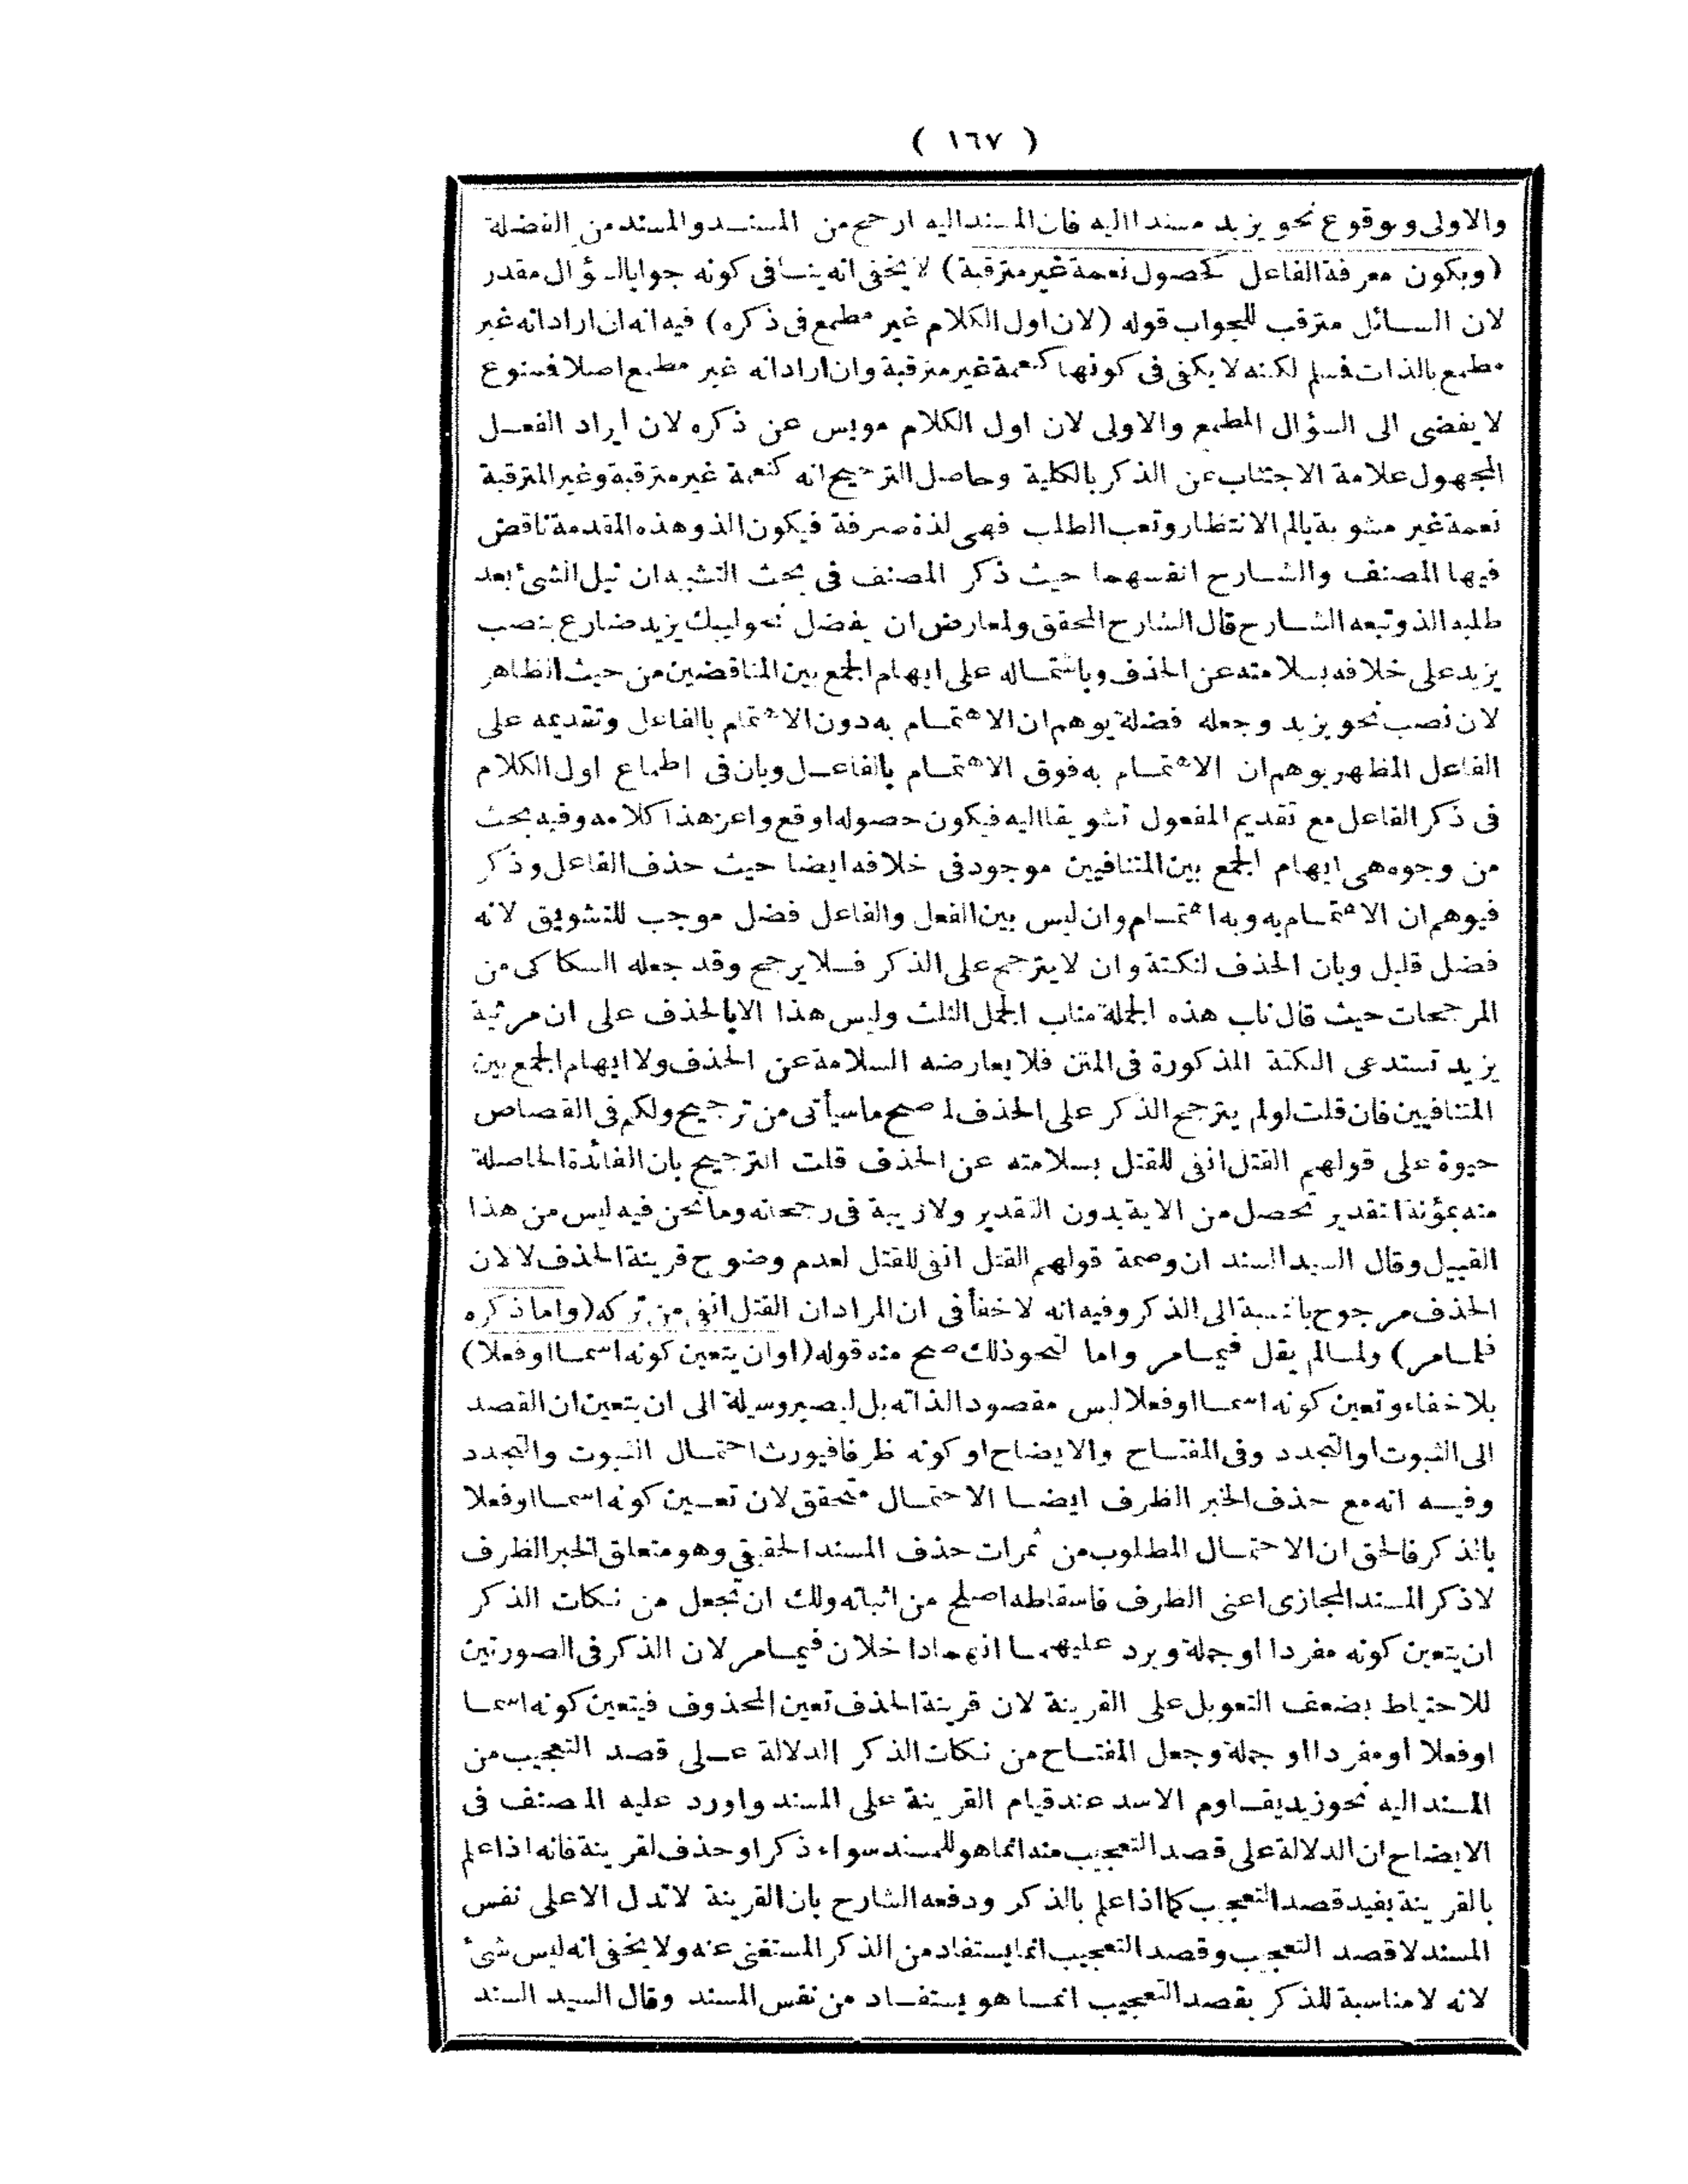 ( ١٦٧ )
والاولى وبوقوع نحو يزيد مسندا اليه فان المسند اليه ارجح من المسند والمسند من الفضلة
(وبكون معرفة الفاعل كحصول نعمة غير مترقبة) لا يخفى انه ينافى كونه جوابا لسؤال مقدر
لان السائل مترقب للجواب قوله (لان اول الكلام غير مطمع فى ذكره) فيه انه ان اراد انه غير
مطمع بالذات فسلم لكنه لا يكفى فى كونها كنعمة غير مترقبة وان اراد انه غير مطمع اصلا فمنوع
لا يفضى الى السؤال المطمع والاولى لان اول الكلام مويس عن ذكره لان ايراد الفعل
المجهول علامة الاجتناب عن الذكر بالكلية وحاصل الترجيح انه كنعمة غير مترقبة وغير المترقبة
نعمة غير مشوبة بالم الانتظار وتعب الطلب فهى لذة صرفة فيكون الذ وهذه المقدمة ناقض
فيها المصنف والشارح انفسهما حيث ذكر المصنف فى بحث التشبيه ان نيل الشئ بعد
طلبه الذ وتبعه الشارح قال الشارح المحقق ولمعارض ان يفضل نحو ليبك يزيد ضارع بنصب
يزيد على خلافه بسلامته عن الحذف وباشتماله على ايهام الجمع بين المتناقضين من حيث الظاهر
لان نصب نحو يزيد وجعله فضلة يوهم ان الاهتمام به دون الاهتمام بالفاعل وتقديمه على
الفاعل المظهر يوهم ان الاهتمام به فوق الاهتمام بالفاعل وبان فى اطماع اول الكلام
فى ذكر الفاعل مع تقديم المفعول تشويقا اليه فيكون حصوله اوقع واعز هذا كلامه وفيه بحث
من وجوه هى ايهام الجمع بين المتنافيين موجود فى خلافه ايضا حيث حذف الفاعل وذكر
فيوهم ان الاهتمام به وبه اهتمام وان ليس بين الفعل والفاعل فضل موجب للتشويق لانه
فضل قليل وبان الحذف لنكتة وان لا يترجح على الذكر فلا يرجح وقد جعله السكاكى من
المرجحات حيث قال ناب هذه الجملة مناب الجمل الثلث وليس هذا الا بالحذف على ان مرثية
يزيد تستدعى النكتة المذكورة فى المتن فلا يعارضه السلامة عن الحذف ولا ايهام الجمع بين
المتنافيين فان قلت لولم يترجح الذكر على الحذف لم صح ما سيأتى من ترجيح ولكم فى القصاص
حيوة على قولهم القتل انفى للقتل بسلامته عن الحذف قلت الترجيح بان الفائدة الحاصلة
منه بمؤنة التقدير تحصل من الاية بدون التقدير ولا ريبة فى رجحانه وما نحن فيه ليس من هذا
القبيل وقال السيد السند ان وصمة قولهم القتل انفى للقتل لعدم وضوح قرينة الحذف لا لان
الحذف مرجوح بالنسبة الى الذكر وفيه انه لا خفأ فى ان المراد ان القتل انفى من تركه (واما ذكره
فلما مر) ولما لم يقل فيما مر واما لنحو ذلك صح منه قوله (او ان يتعين كونه اسما او فعلا)
بلا خفاء وتعين كونه اسما او فعلا ليس مقصودا لذاته بل ليصير وسيلة الى ان يتعين ان القصد
الى الثبوت او التجدد وفى المفتاح والايضاح او كونه ظرفا فيورث احتمال الثبوت والتجدد
وفيه انه مع حذف الخبر الظرف ايضا الاحتمال متحقق لان تعيين كونه اسما او فعلا
بالذكر فالحق ان الاحتمال المطلوب من ثمرات حذف المسند الحقيقى وهو متعلق الخبر الظرف
لا ذكر المسند المجازى اعنى الظرف فاسقاطه اصلح من اثباته ولك ان تجعل من نكات الذكر
ان يتعين كونه مفردا او جملة ويرد عليهما انهما داخلان فيما مر لان الذكر فى الصورتين
للاحتياط بضعف التعويل على القرينة لان قرينة الحذف تعين المحذوف فيتعين كونه اسما
او فعلا او مفردا او جملة وجعل المفتاح من نكات الذكر الدلالة على قصد التعجيب من
المسند اليه نحو زيد يقاوم الاسد عند قيام القرينة على المسند واورد عليه المصنف فى
الايضاح ان الدلالة على قصد التعجيب منه انما هو للمسند سواء ذكر او حذف لقرينة فانه اذا علم
بالقرينة يفيد قصد التعجيب كما اذا علم بالذكر ودفعه الشارح بان القرينة لا تدل الا على نفس
المسند لا قصد التعجيب وقصد التعجيب انما يستفاد من الذكر المستغنى عنه ولا يخفى انه ليس شئ
لانه لا مناسبة للذكر بقصد التعجيب انما هو يستفاد من نفس المسند وقال السيد السند